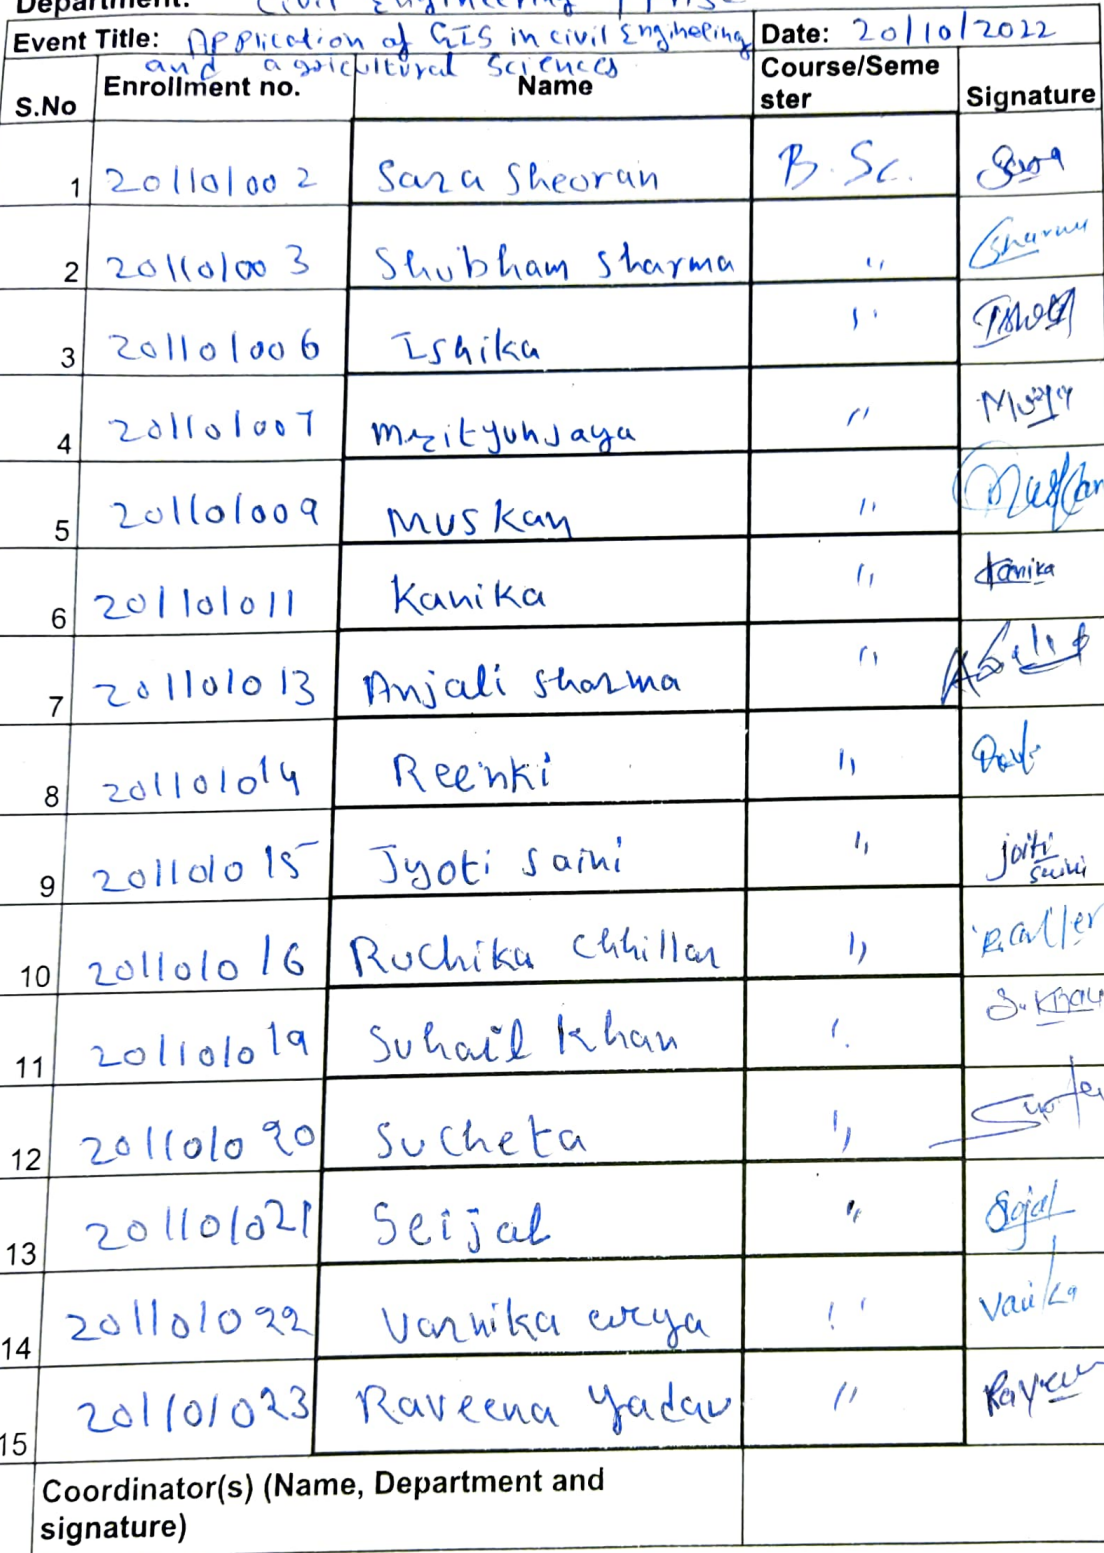 Department: Civil Engineering
Event Title: Application of GIS in civil Engineering Date: 20/10/2022
and agricultural Sciences
S.No Enrollment no. Name Course/Seme ster Signature
1 201101002 Sara Sheoran B.Sc.
2 201101003 Shubham Sharma " Sharma
3 201101006 Ishika "
4 201101007 Mrityunjaya "
5 201101009 Muskan " Muskan
6 201101011 Kanika " Kanika
7 201101013 Anjali Sharma "
8 201101014 Reenki "
9 201101015 Jyoti Saini " joiti Saini
10 201101016 Ruchika Chhillar "
11 201101019 Suhail Khan " S. Khan
12 201101020 Sucheta "
13 201101021 Seijal " Sejal
14 201101022 Varnika arya "
15 201101023 Raveena Yadav "
Coordinator(s) (Name, Department and
signature)